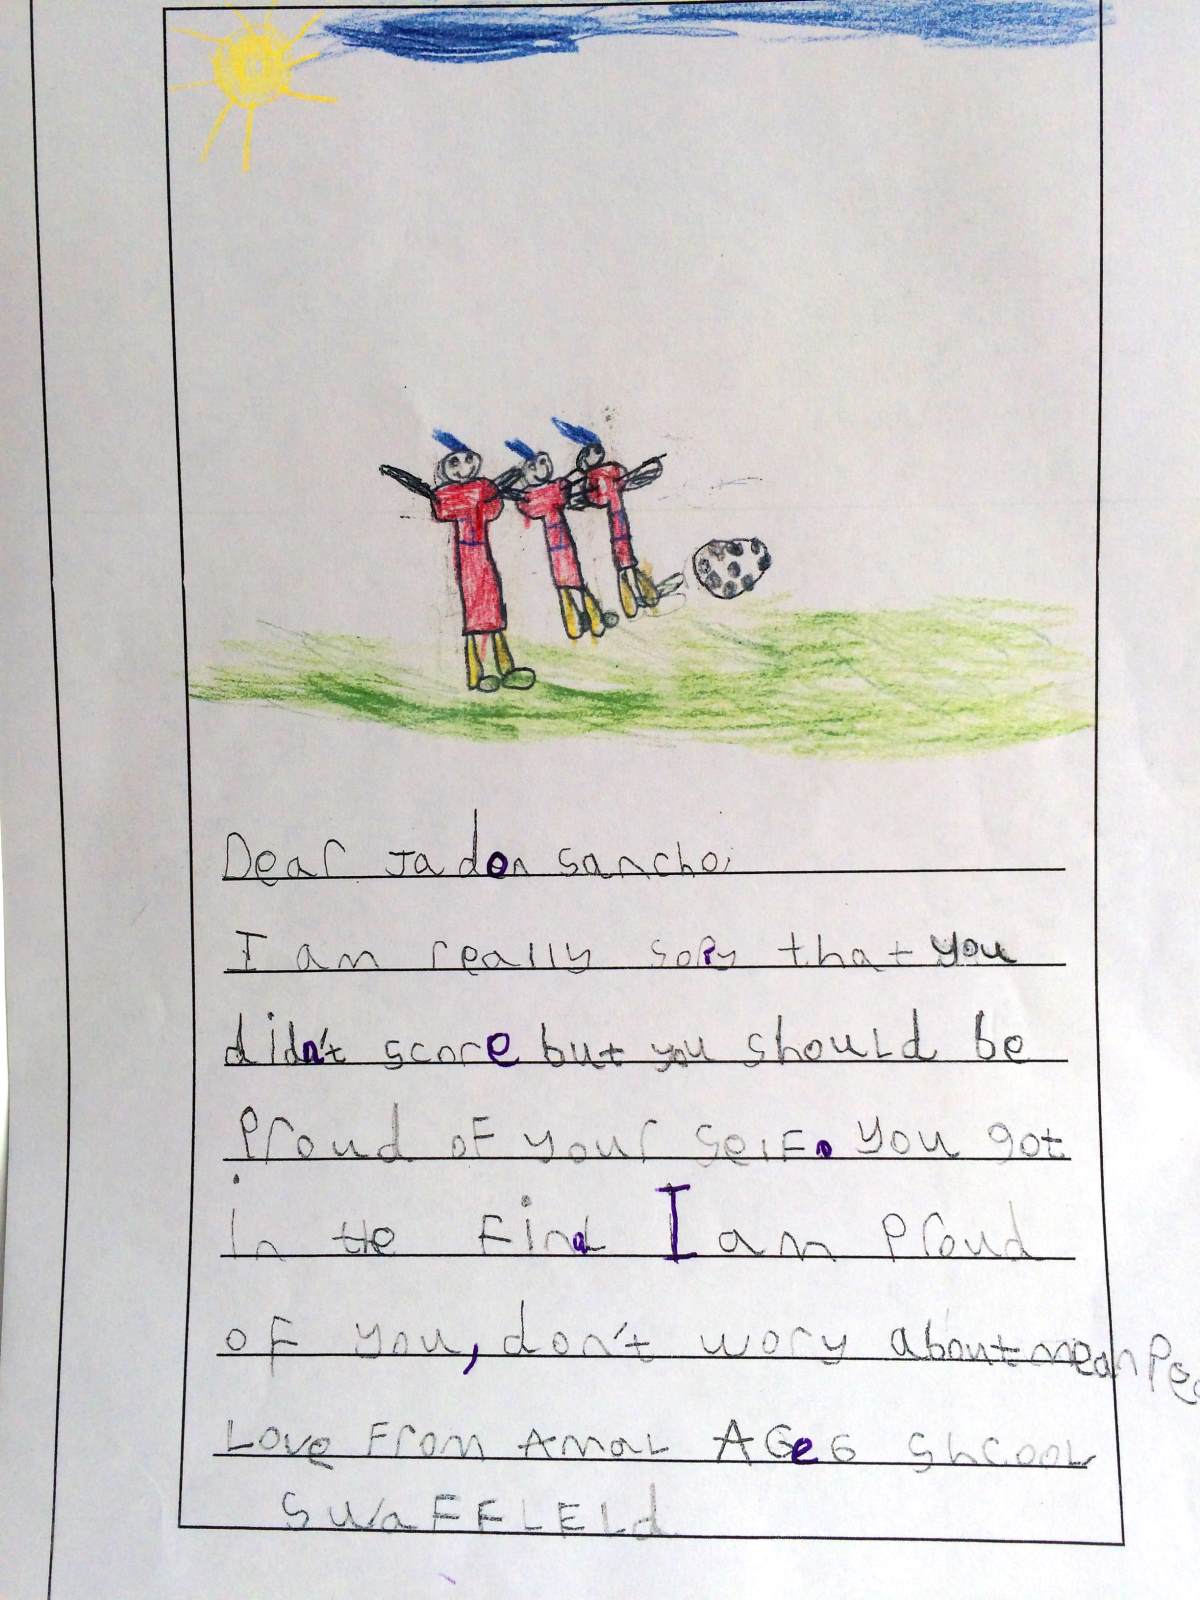 Dear Jadon sancho,
I am really sory that you
didn't score but you should be
Proud of your self. you got
in the Final I am Proud
of you, don't wory about mean Peo
Love From Amal AGe 6 Shcool
SwaFFLELd